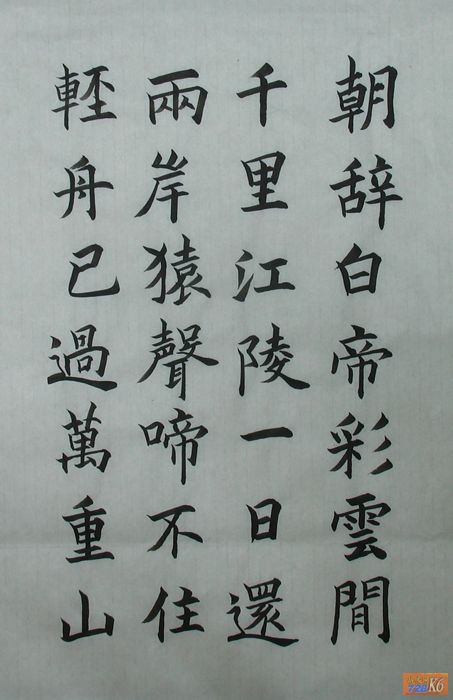 朝辞白帝彩雲間
千里江陵一日還
兩岸猿聲啼不住
輕舟已過萬重山
726 K6